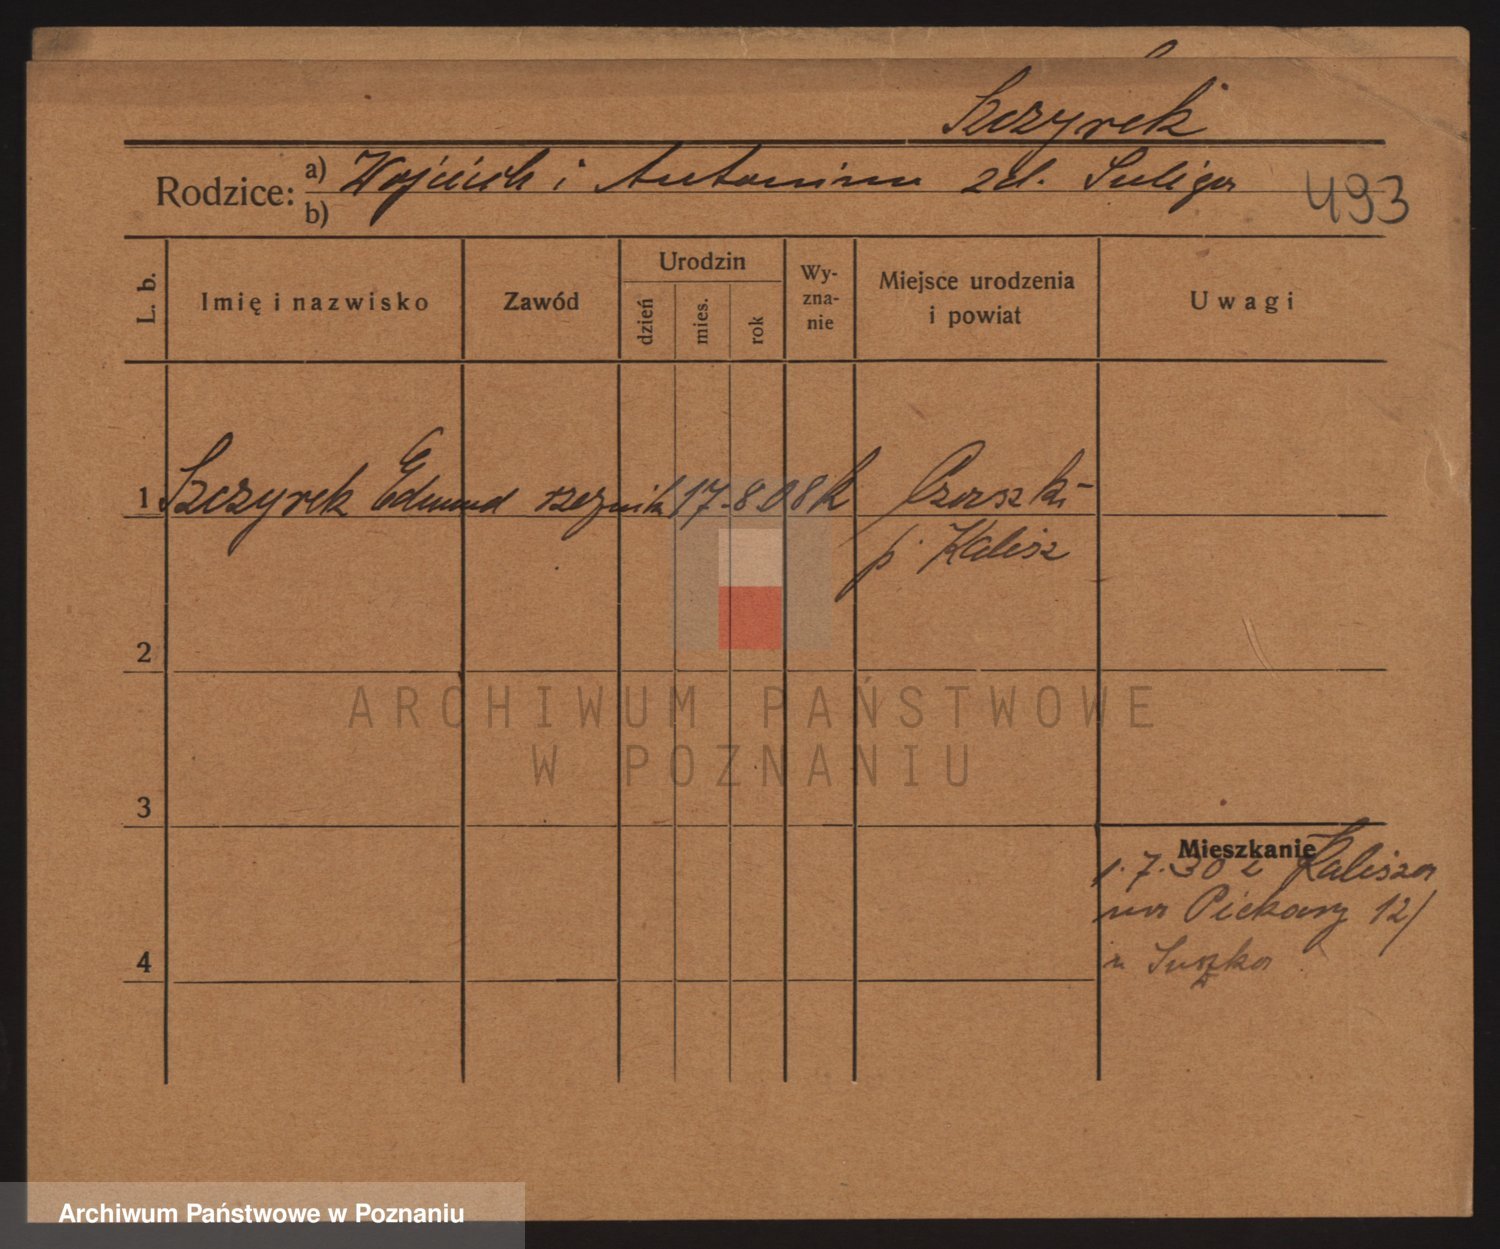 Szczyrek
Rodzice: a) Wojciech i Antonina zd. Suliga
b)
493
L. b. Imię i nazwisko Zawód Urodzin dzień mies. rok Wy-zna-nie Miejsce urodzenia i powiat Uwagi
1 Szczyrek Edmund rzeźnik 17.8.08 k
p. Kalisz
2
ARCHIWUM PAŃSTWOWE
W POZNANIU
3
Mieszkanie
1.7.30 z Kalisza
na Piekary 12/
4
Archiwum Państwowe w Poznaniu